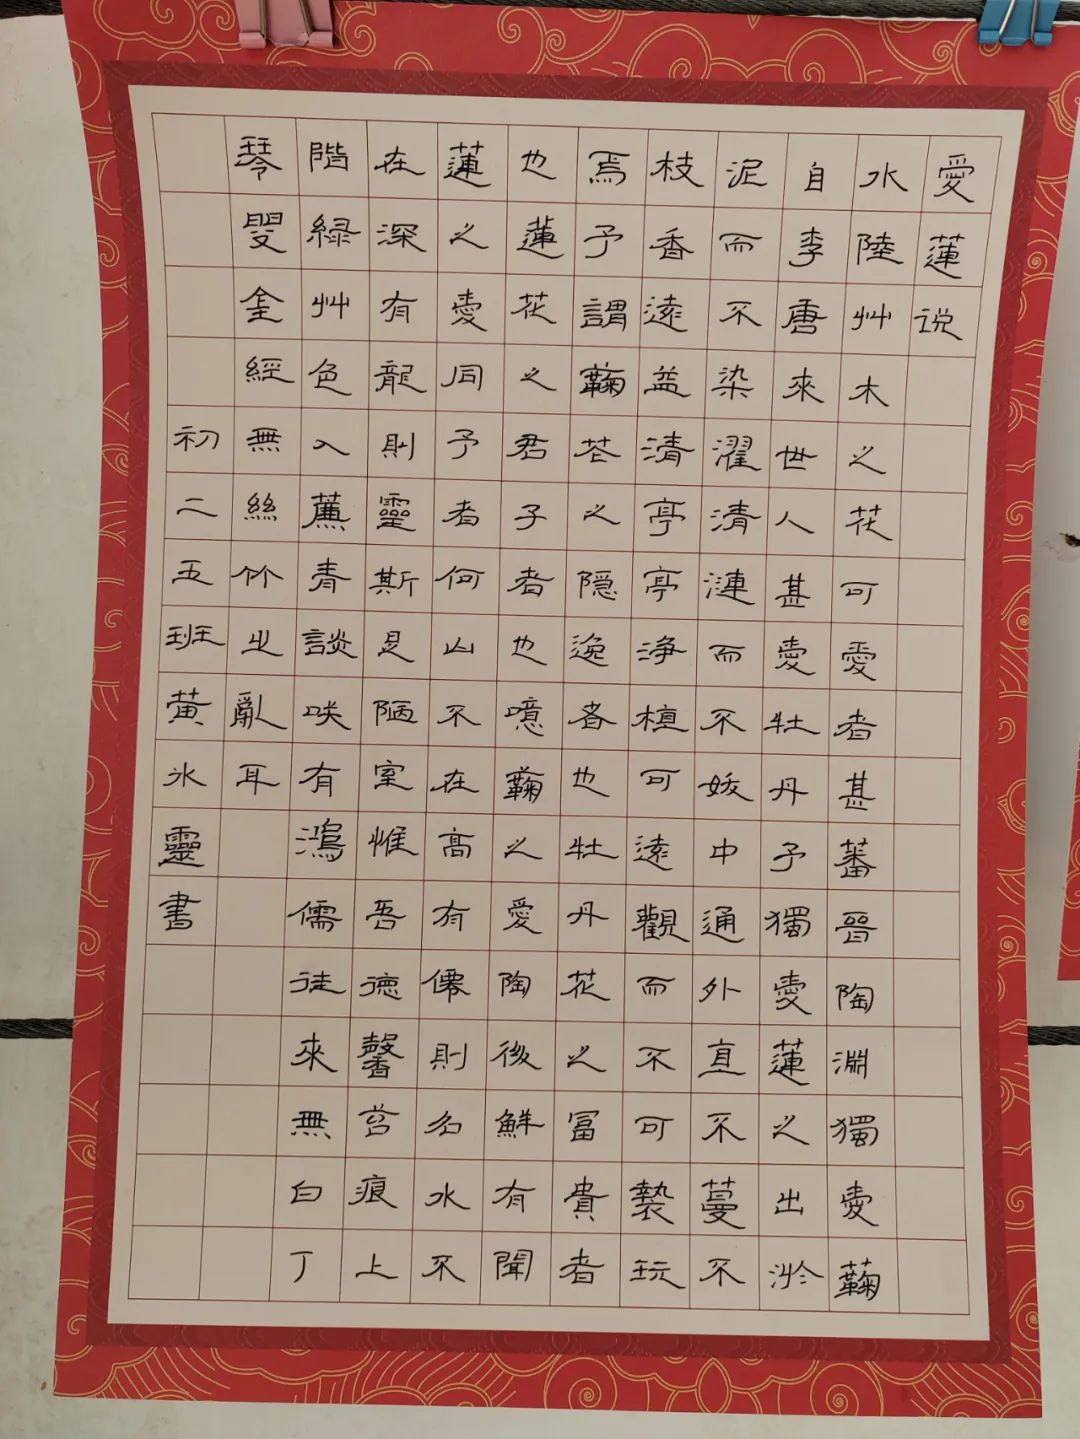 愛蓮说
水陸艸木之花可愛者甚蕃晉陶淵獨愛鞠
自李唐來世人甚愛牡丹予獨愛蓮之出淤
泥而不染濯清漣而不妖中通外直不蔓不
枝香遠益清亭亭淨植可遠觀而不可褻玩
焉予謂鞠花之隐逸者也牡丹花之冨貴者
也蓮花之君子者也噫鞠之愛陶後鮮有聞
蓮之愛同予者何山不在高有僊則名水不
在深有龍則靈斯是陋室惟吾德馨苔痕上
階緑艸色入薕青談咲有鴻儒往來無白丁
琴閱金經無絲竹之亂耳
初二五班黄冰靈書